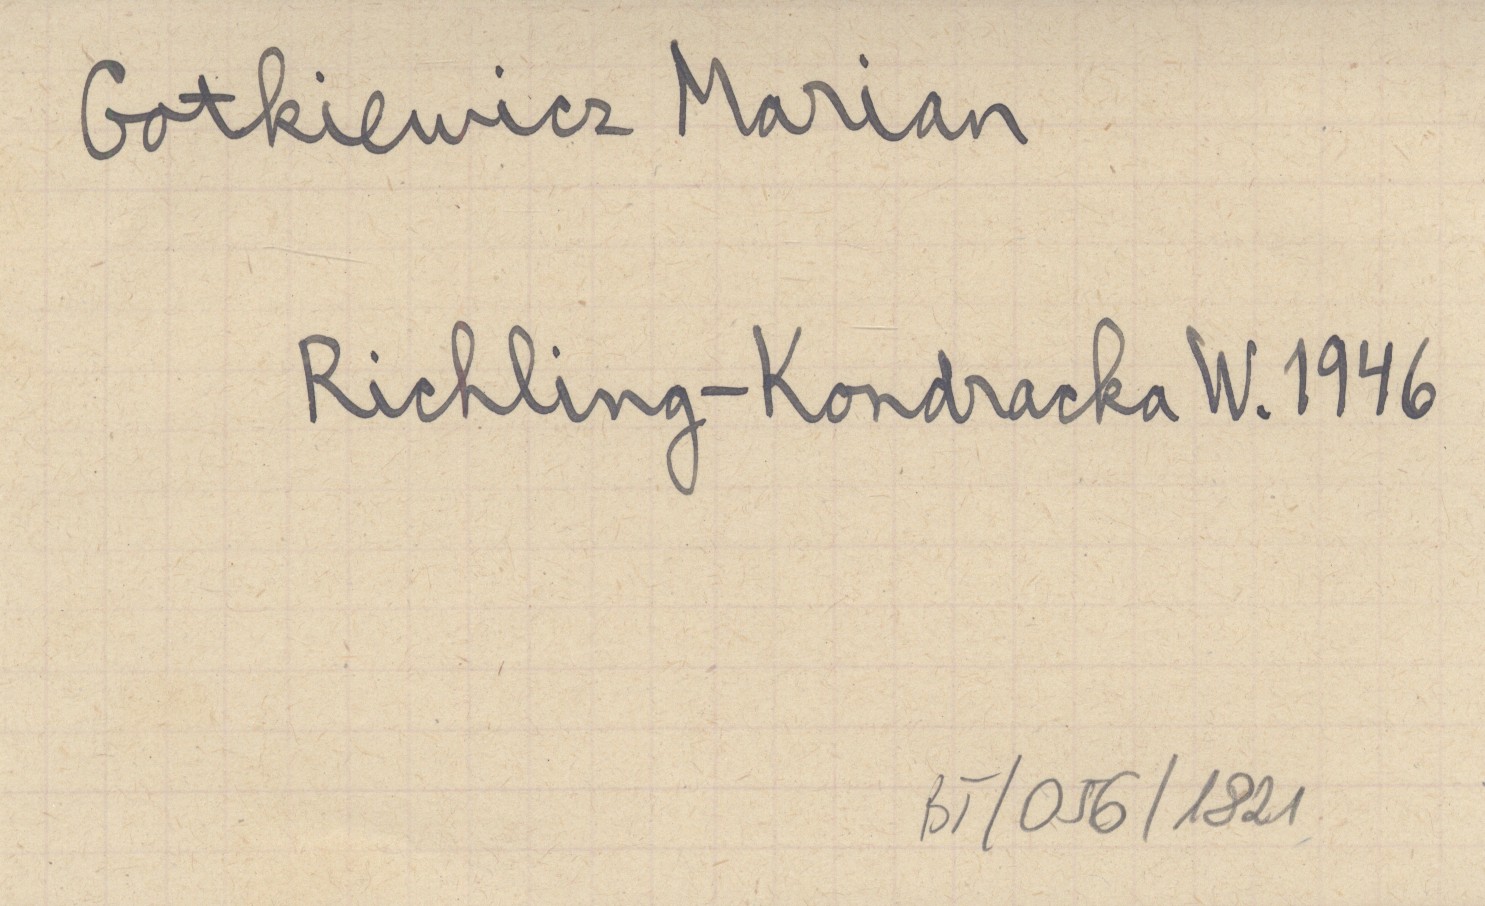 Gotkiewicz Marian
Richling-Kondracka W. 1946
BT/056/1821